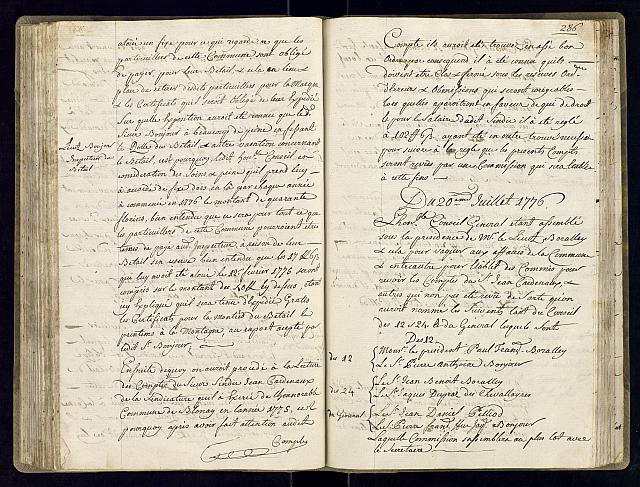 atoin un fixe pour ce qui regarde ce que les
particuliers de cette Commune sont obligé
de payer pour leur Betail, & cela en lieu &
place de autres dédits particuliers pour la Marque
& les Certificats qui seront obligé de leur
Sur quelle opposition auroit été connue que led.
Sieur Bonjour à beaucoup de peine en faisant
le Rolle du Betail, & autre vacation concernant
Lieut. Bonjour
Inspecteur du
Bétail
le Betail, est pourquoy ledit hon.ble Conseil en
considération des Soins & peine qu'il prend luy
a accordé de fixe dois en la par chaque année
a commencé en 1776 le montant de quarante
florins, bien entendue que ce sera pour tout ce que
les particuliers de cette Commune pourroient être
tenus de payé aud. Inspecteur, à raison de leur
Betail, bien entendu que les
qui luy avoit été aloué le 12e février 1776 seront
compris sur le montant des susd., étant
icy expliqué qu'il sera tenue d'expédié Gratis
les Certificats pour la montée du Betail le
printems à la Montagne, au raport accepté par
ledit Sr. Bonjour
Ensuite dequoy on auroit procédé à la lecture
des Comptes du Sieur Sindic Jean Cardenaux
de la Sindicature qu'il à exercé de l'honnorable
Commune de Blonay en l'année 1775, est
pourquoy après avoir fait attention audit
Compte
286
Compte ils auroit été trouvez en asse bon
Ordre pour consequend il à été connu quils
doivent être Clos & fermé sous les réserves Ord-
dinaires & Obmissions qui seront irrépables
lors quelles aparoitront en faveur de qui de droit
& pour le Salaire dudit Sindic il à été réglé
à 102 ff 6 s. ayant été en outre trouvé necessaire
pour suivre à la regle que les présents Comptes
seront revües par une Commission qui sera établie
à cette fins
Du 20eme Juillet 1776
L'hon.ble Conseil General étant assemblé
sous la présidence de Mr. le Lieut. Boralley
& cela pour vaquer aux affaires de la Commune
& entreautre pour l'établit des Commis pour
revoir les Comptes du Sr. Jean Cardenaux, &
autres qui non pas été revüe de sorte qu'on
auroit nommé les Suivants tant du Conseil
des 12 & 24 & du Général lesquels sont
Des 12
des 12
Monsr. le président Paul Franç. Boralley
Le Sr. Pierre Anthoine Bonjour
des 24
Le Sr. Jean Benoit Boralley
Le Sr. Jaques Dupraz des Chevallayres
du Général
Le Sr. Jean Daniel Pilliod
Le Sr. Pierre feu Jaq. Bonjour
Laquelle Commission sassemblera au plus tot avec
le Secretaire